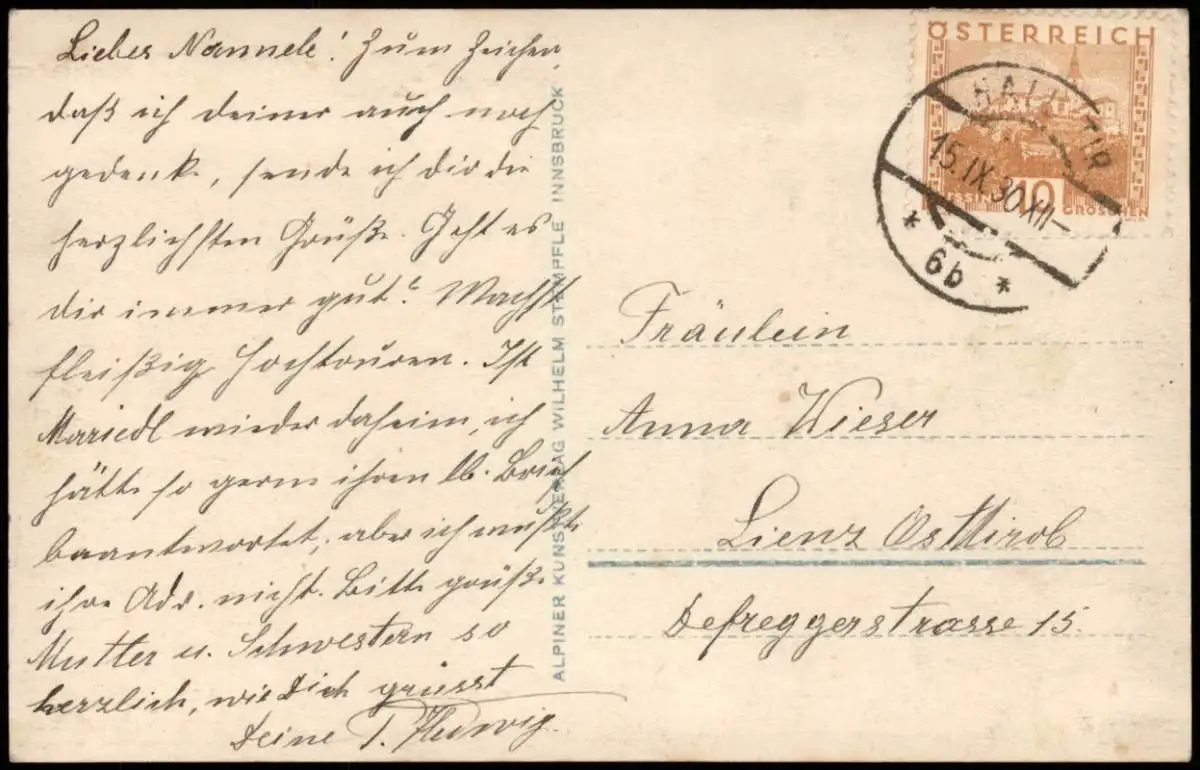 Liebes Nannele! Zum Zeichen,
daß ich deiner auch noch
gedenke, sende ich dir die
herzlichsten Grüße. Geht es
dir immer gut? Machst
fleißig Hochtouren. Ist
Mariedl wieder daheim, ich
hätte so gerne ihren lb. Brief
beantwortet, aber ich wußte
ihre Adr. nicht. Bitte grüße
Mutter u. Schwestern so
herzlich, wie Dich grüsst
Deine T. Hedwig.
ALPINER KUNSTVERLAG WILHELM STEMPFLE INNSBRUCK
ÖSTERREICH
10
GROSCHEN
HALL TIR
15.IX.30 XII–
* 6b *
Fräulein
Anna Wieser
Lienz Osttirol
Defreggerstrasse 15.